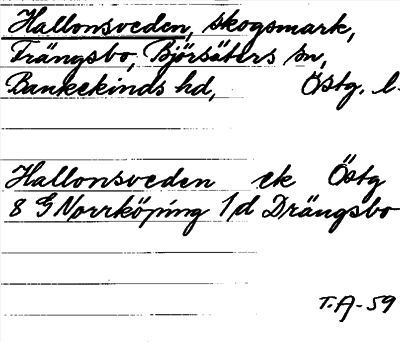 Hallonsveden, skogsmark,
Trängsbo, Björsäters sn,
Bankekinds hd, Östg. l.
Hallonsveden ek Östg
8 G Norrköping 1/d Drängsbo
T.A-59